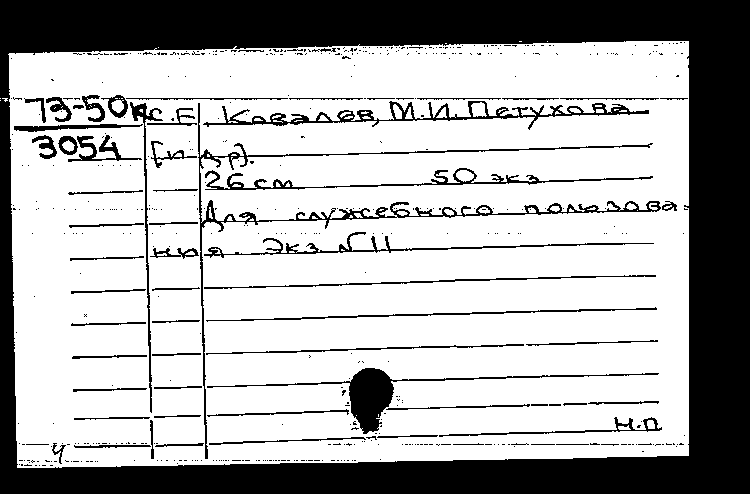 73-50к С.Е. Ковалев, М.И. Петухова
3054 [и др].
26 см 50 экз
Для служебного пользова-
ния. Экз № 11
Н.П
ч